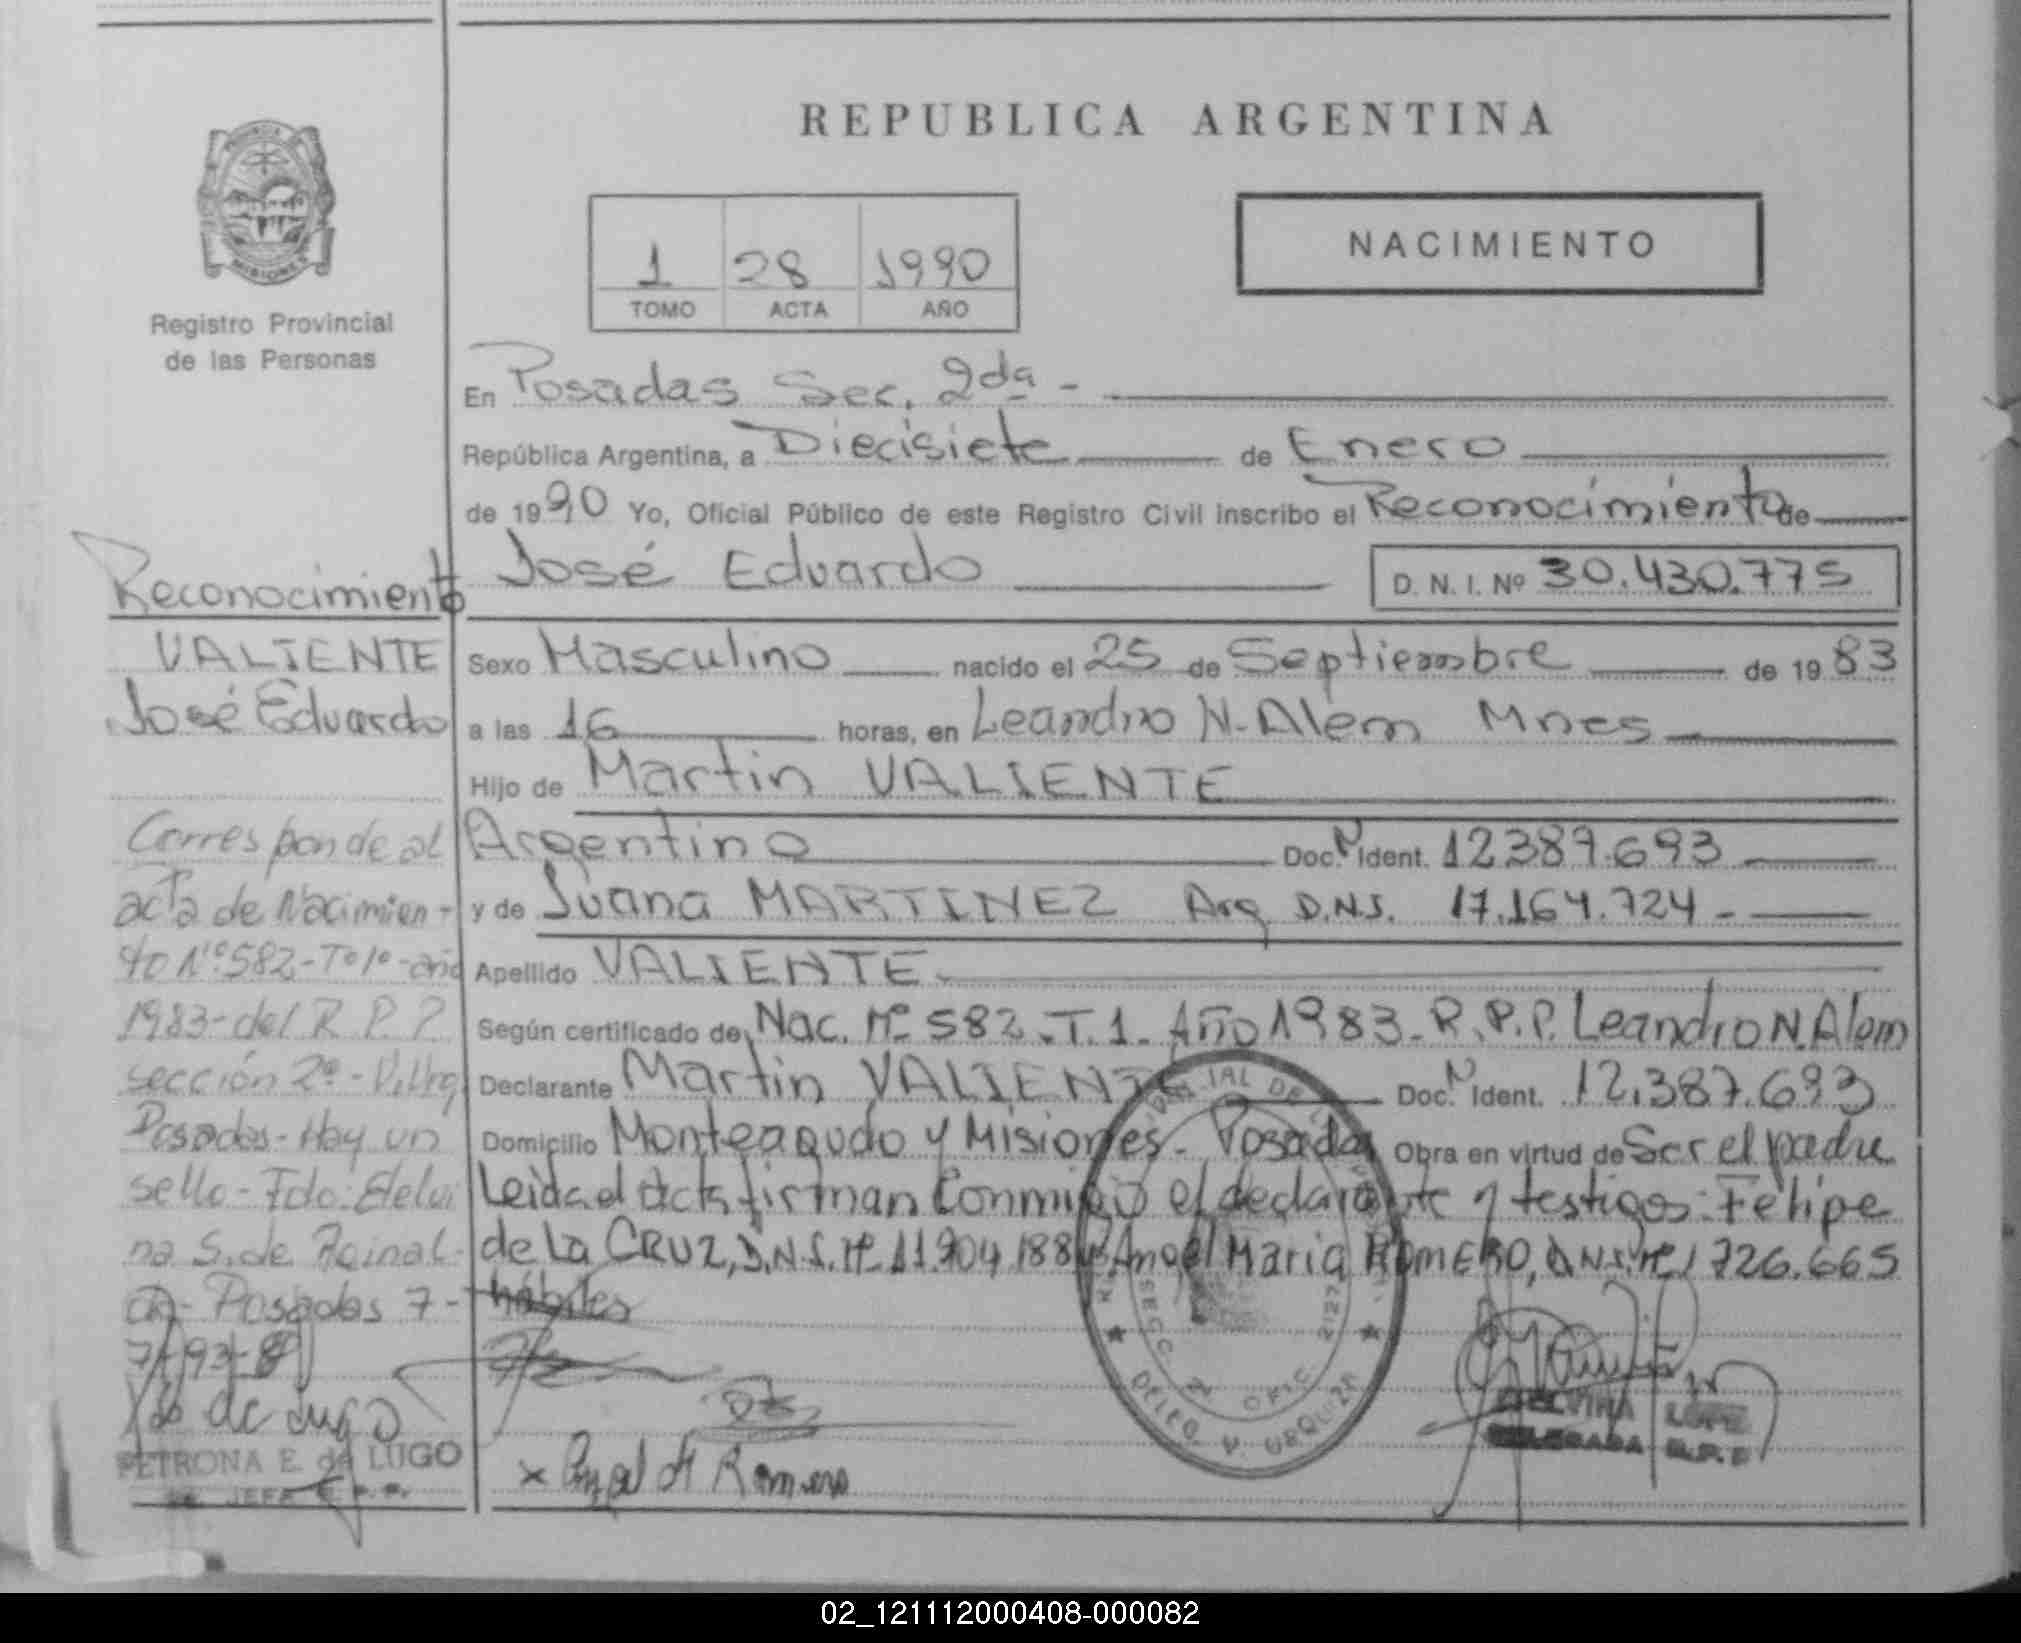 REPUBLICA ARGENTINA
MISIONES
Registro Provincial
de las Personas
1 28 1990
TOMO ACTA AÑO
NACIMIENTO
En Posadas Sec. 2da -
República Argentina, a Diecisiete de Enero
de 1990 Yo, Oficial Público de este Registro Civil inscribo el Reconocimiento de
José Eduardo D. N. I. Nº 30.430.775
Sexo Masculino nacido el 25 de Septiembre de 1983
a las 16 horas, en Leandro N. Alem Mnes
Hijo de Martin VALIENTE
Argentino Doc. N Ident. 12389.693
y de Juana MARTINEZ Arg D.N.I. 17.164.724 -
Apellido VALIENTE.
Según certificado de Nac. Nº 582. T. 1. Año 1983. R. P. P. Leandro N. Alem
Declarante Martin VALIENTE Doc. N Ident. 12.387.693
Domicilio Monteagudo y Misiones - Posadas Obra en virtud de Ser el padre
Leida el acta firman Conmigo el declarante y testigos: Felipe
de la CRUZ, D.N.I. Nº 11.904.188 y Angel Maria ROMERO, D.N.I. Nº 1 726.665
hábiles
x Angel M Romero
Reconocimiento
VALIENTE
José Eduardo
Corresponde al
acta de Nacimien-
to Nº 582 - Tº 1º - año
1983 - del R. P. P.
sección 2ª - V. Urq.
Posadas - Hay un
sello - Fdo: Etelvi
na S. de Reinal-
di - Posadas 7 -
7 - 93 -
de Lugo
PETRONA E. de LUGO
JEFA R. P. P.
SECC. 2 OFIC. 2127
DELEG. V. URQUIZA
ETELVINA LOPE
DELEGADA R.P.P
02_121112000408-000082